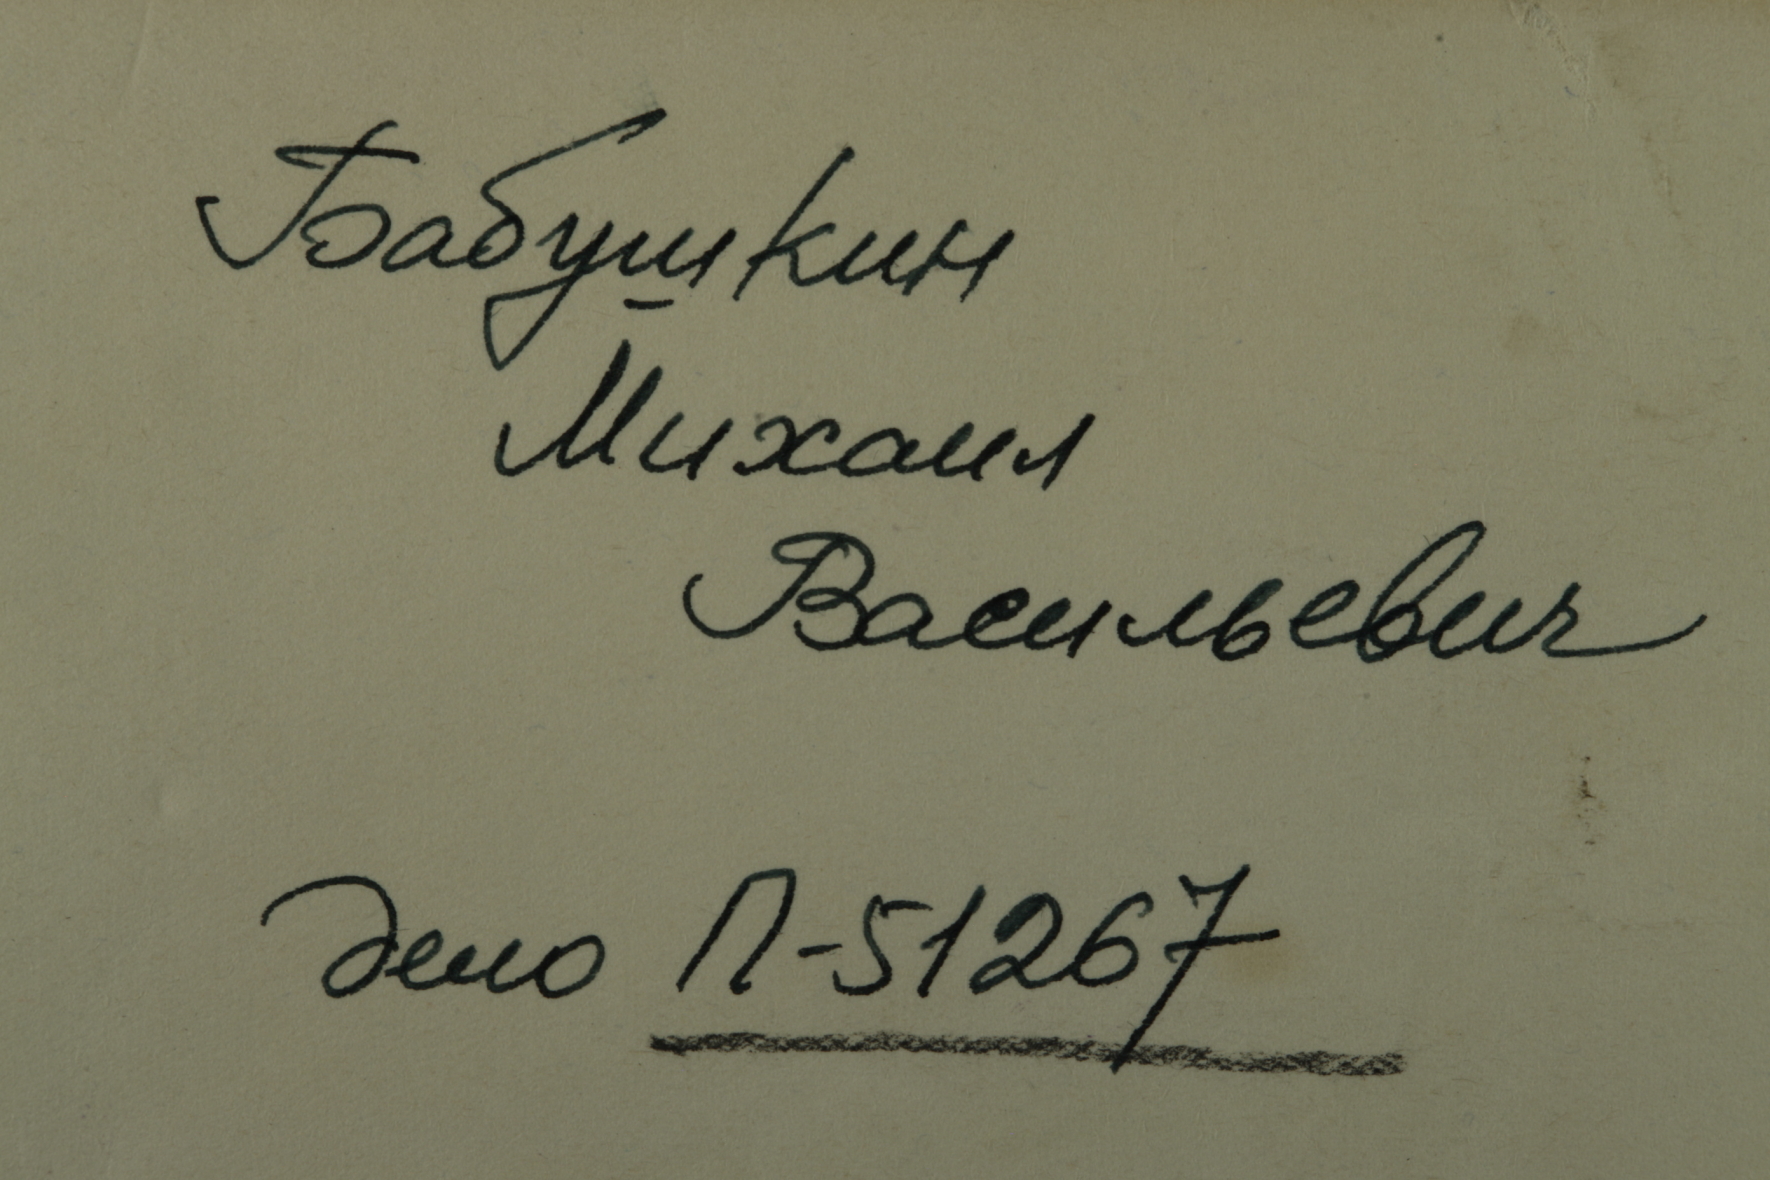 Бабушкин
Михаил
Васильевич
дело П-51267